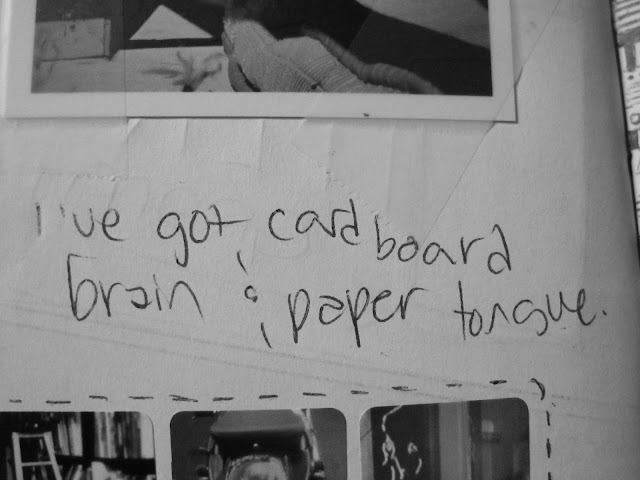 i've got cardboard
brain & paper tongue.